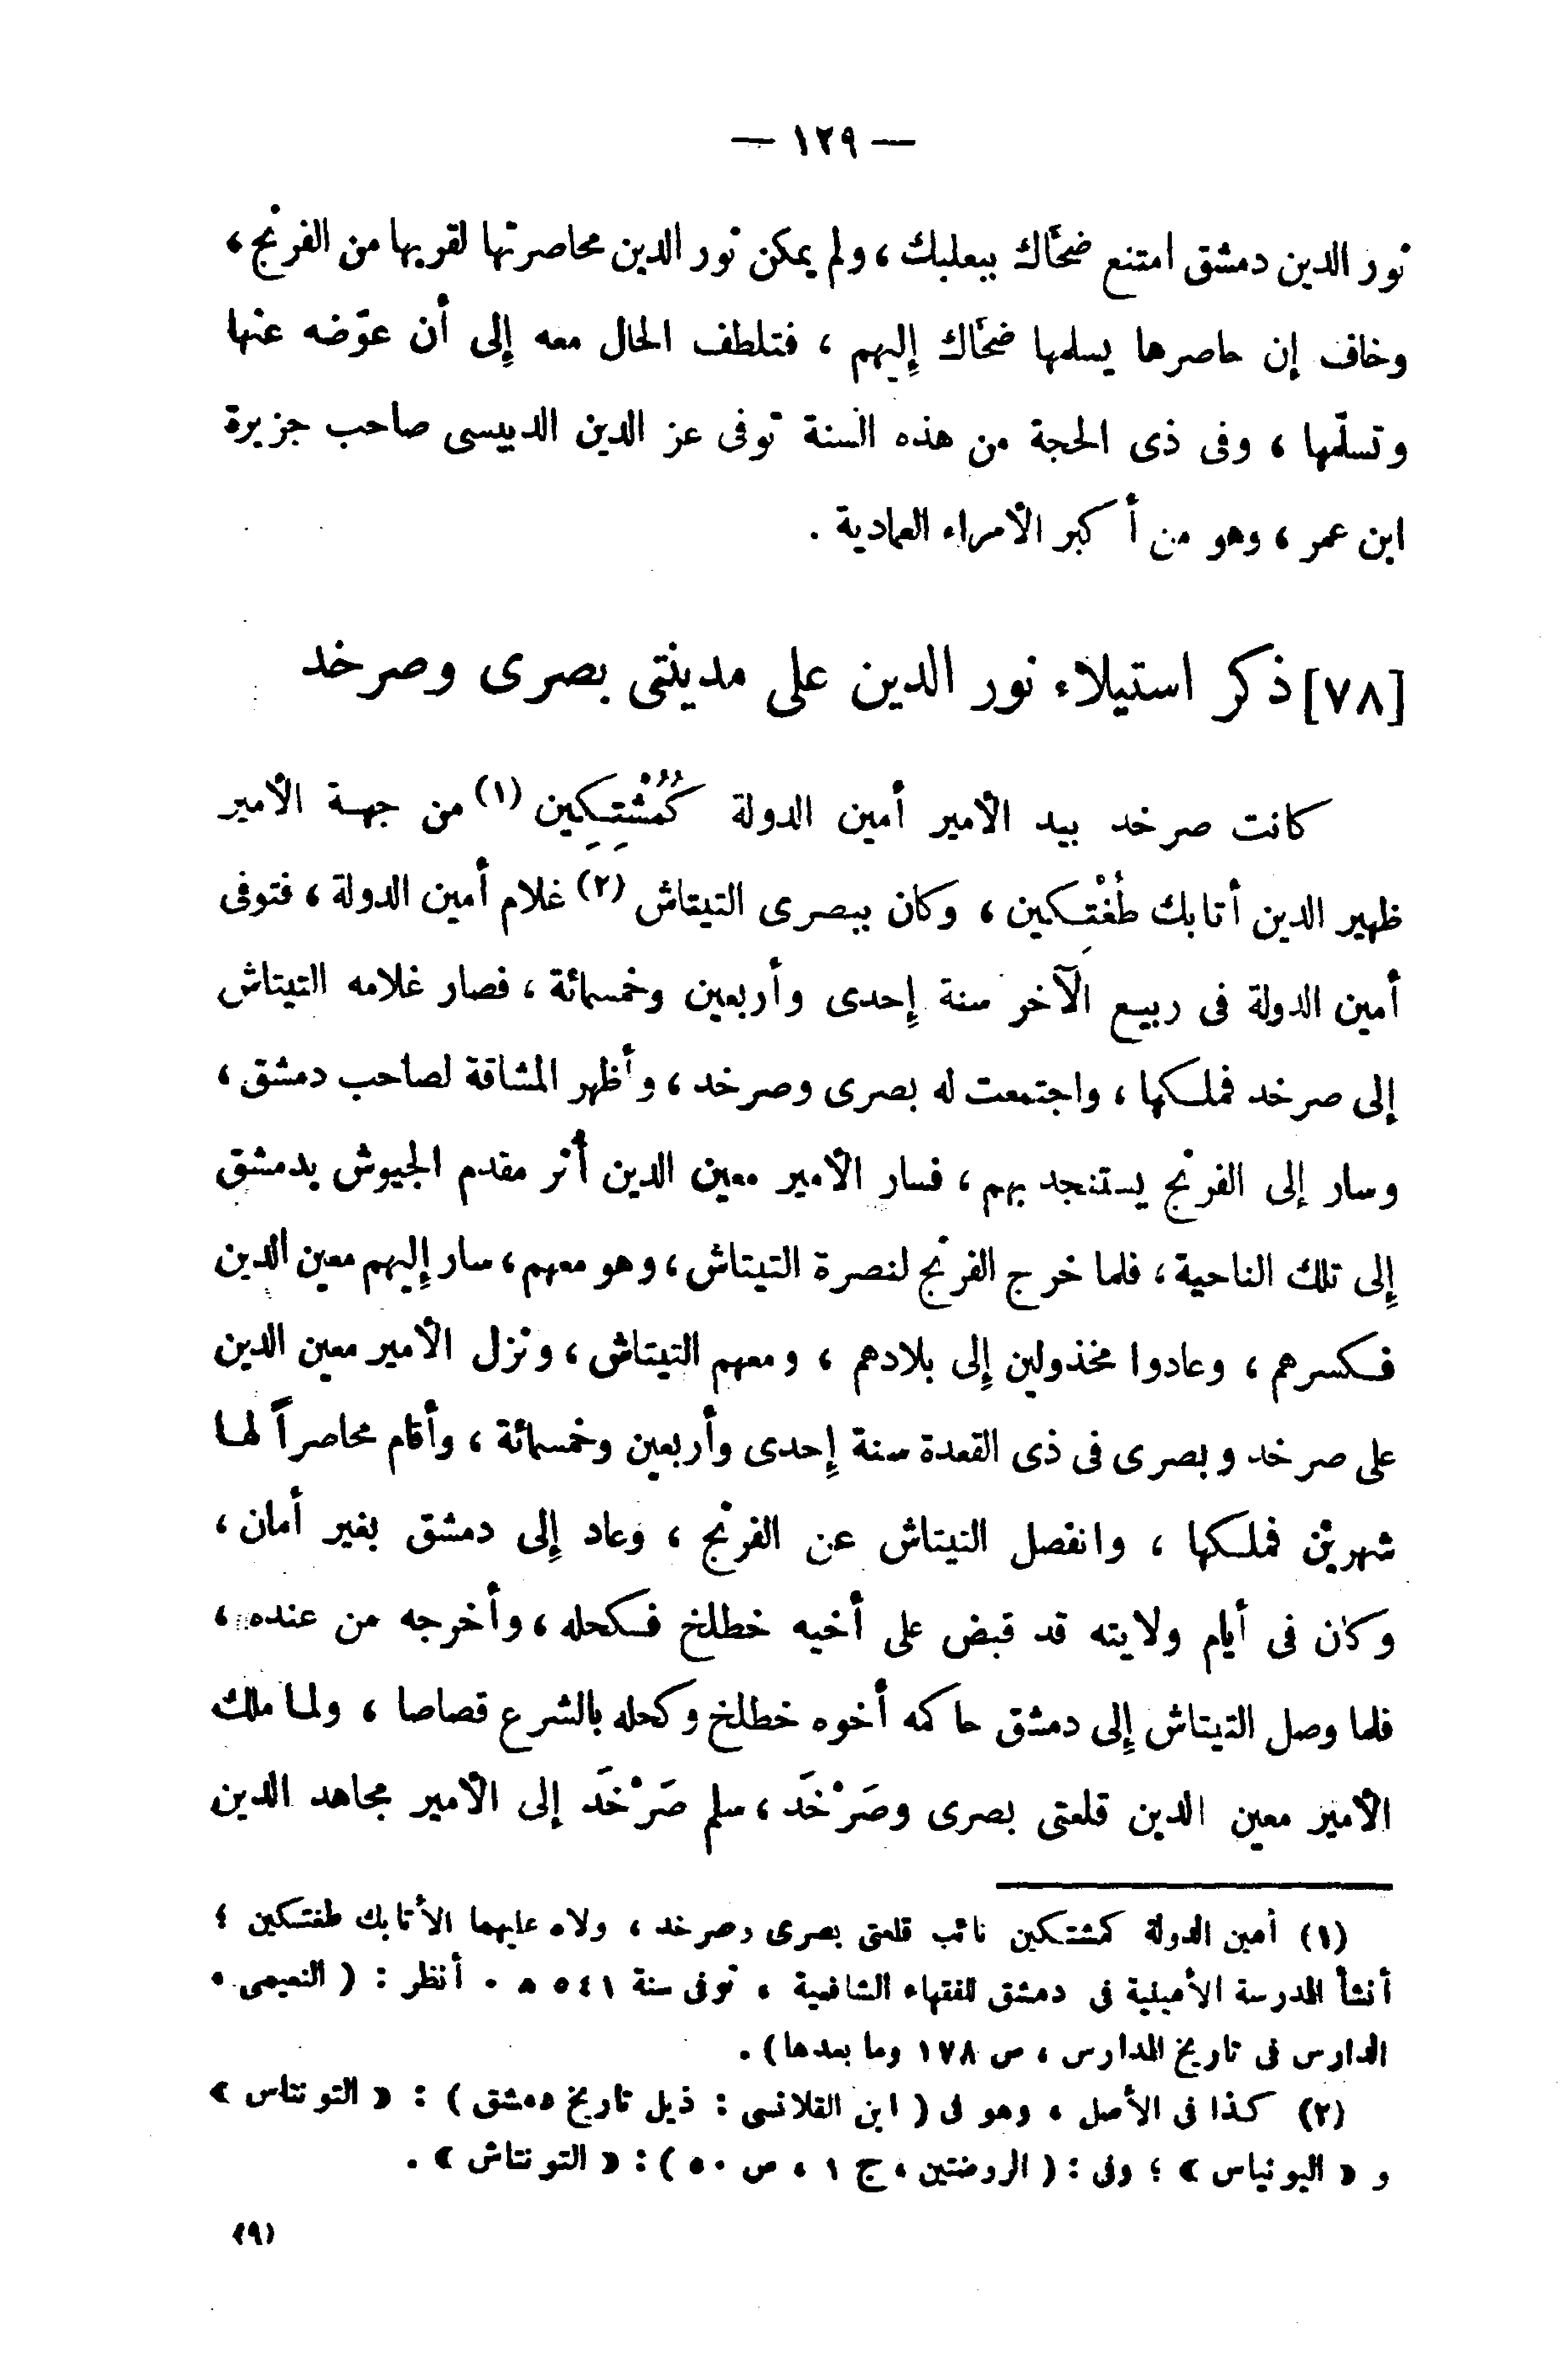 — ١٢٩ —
نور الدين دمشق امتنع ضحّاك ببعلبك ، ولم يمكن نور الدين محاصرتها لقربها من الفرنج ،
وخاف إن حاصرها يسلمها ضحّاك إليهم ، فتلطف الحال معه إلى أن عوّضه عنها
وتسلّمها ، وفى ذى الحجة من هذه السنة توفى عز الدين الدبيسى صاحب جزيرة
ابن عمر ، وهو من أكبر الأمراء العمادية .
[٧٨] ذكر استيلاء نور الدين على مدينتى بصرى وصرخد
كانت صرخد بيد الأمير أمين الدولة كُمُشْتِكِين (١) من جهة الأمير
ظهير الدين أتابك طُغْتِكين ، وكان ببصرى التيتاش (٢) غلام أمين الدولة ، فتوفى
أمين الدولة فى ربيع الآخر سنة إحدى وأربعين وخمسمائة ، فصار غلامه التيتاش
إلى صرخد فملكها ، واجتمعت له بصرى وصرخد ، وأظهر المشاقة لصاحب دمشق ،
وسار إلى الفرنج يستنجد بهم ، فسار الأمير معين الدين أنر مقدم الجيوش بدمشق
إلى تلك الناحية ، فلما خرج الفرنج لنصرة التيتاش ، وهو معهم ، سار إليهم معين الدين
فكسرهم ، وعادوا مخذولين إلى بلادهم ، ومعهم التيتاش ، ونزل الأمير معين الدين
على صرخد وبصرى فى ذى القعدة سنة إحدى وأربعين وخمسمائة ، وأقام محاصراً لهما
شهرين فملكها ، وانفصل التيتاش عن الفرنج ، وعاد إلى دمشق بغير أمان ،
وكان فى أيام ولايته قد قبض على أخيه خطلخ فكحله ، وأخرجه من عنده ،
فلما وصل التيتاش إلى دمشق حاكمه أخوه خطلخ وكحله بالشرع قصاصا ، ولما ملك
الأمير معين الدين قلعتى بصرى وصَرْخَد ، سلم صَرْخَد إلى الأمير مجاهد الدين
(١) أمين الدولة كمشتكين نائب قلعتى بصرى وصرخد ، ولاه عليهما الأتابك طغتكين ؛
أنشأ المدرسة الأمينية فى دمشق للفقهاء الشافعية ، توفى سنة ٥٤١ ه . أنظر : ( النعيمى .
الدارس فى تاريخ المدارس ، ص ١٧٨ وما بعدها ) .
(٢) كذا فى الأصل ، وهو فى ( ابن القلانسى : ذيل تاريخ دمشق ) : « التونتاس »
و « البونياس » ؛ وفى : ( الروضتين ، ج ١ ، ص ٥٠ ) : « التونتاش » .
(٩)